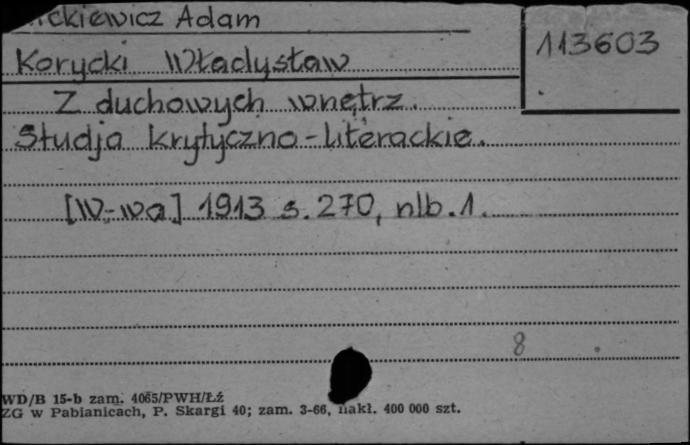 Mickiewicz Adam
113603
Korycki Władysław
Z duchowych wnętrz.
Studja krytyczno-literackie.
[W-wa] 1913 s. 270, nlb. 1.
8
WD/B 15-b zam. 4065/PWH/Łź
ZG w Pabianicach, P. Skargi 40; zam. 3-66, nakł. 400 000 szt.